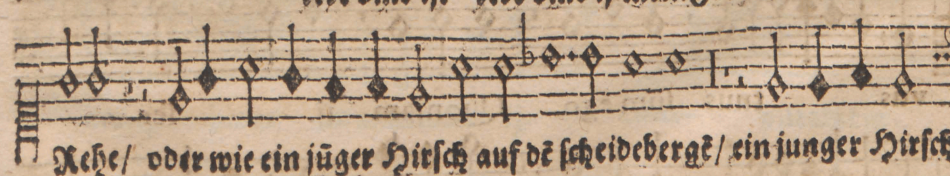 Rehe/ oder wie ein jūger Hirſch auf dē ſcheidebergē/ ein junger Hirſch